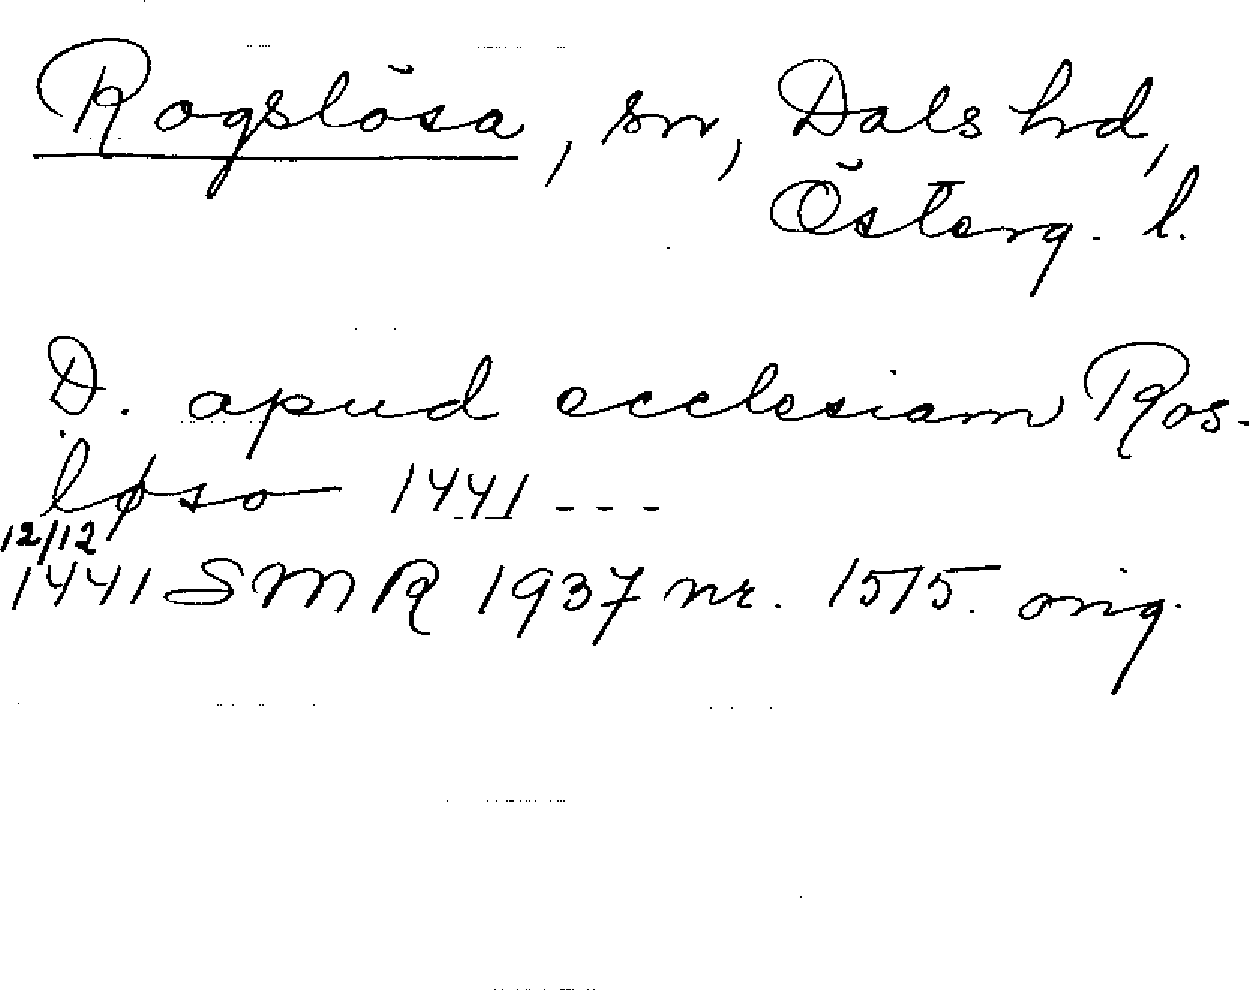 Rogslösa, sn, Dals hd,
Österg. l.
D. apud ecclesiam Ros-
løso 1441 - - -
12/12
1441 SMR 1937 nr. 1515. orig.